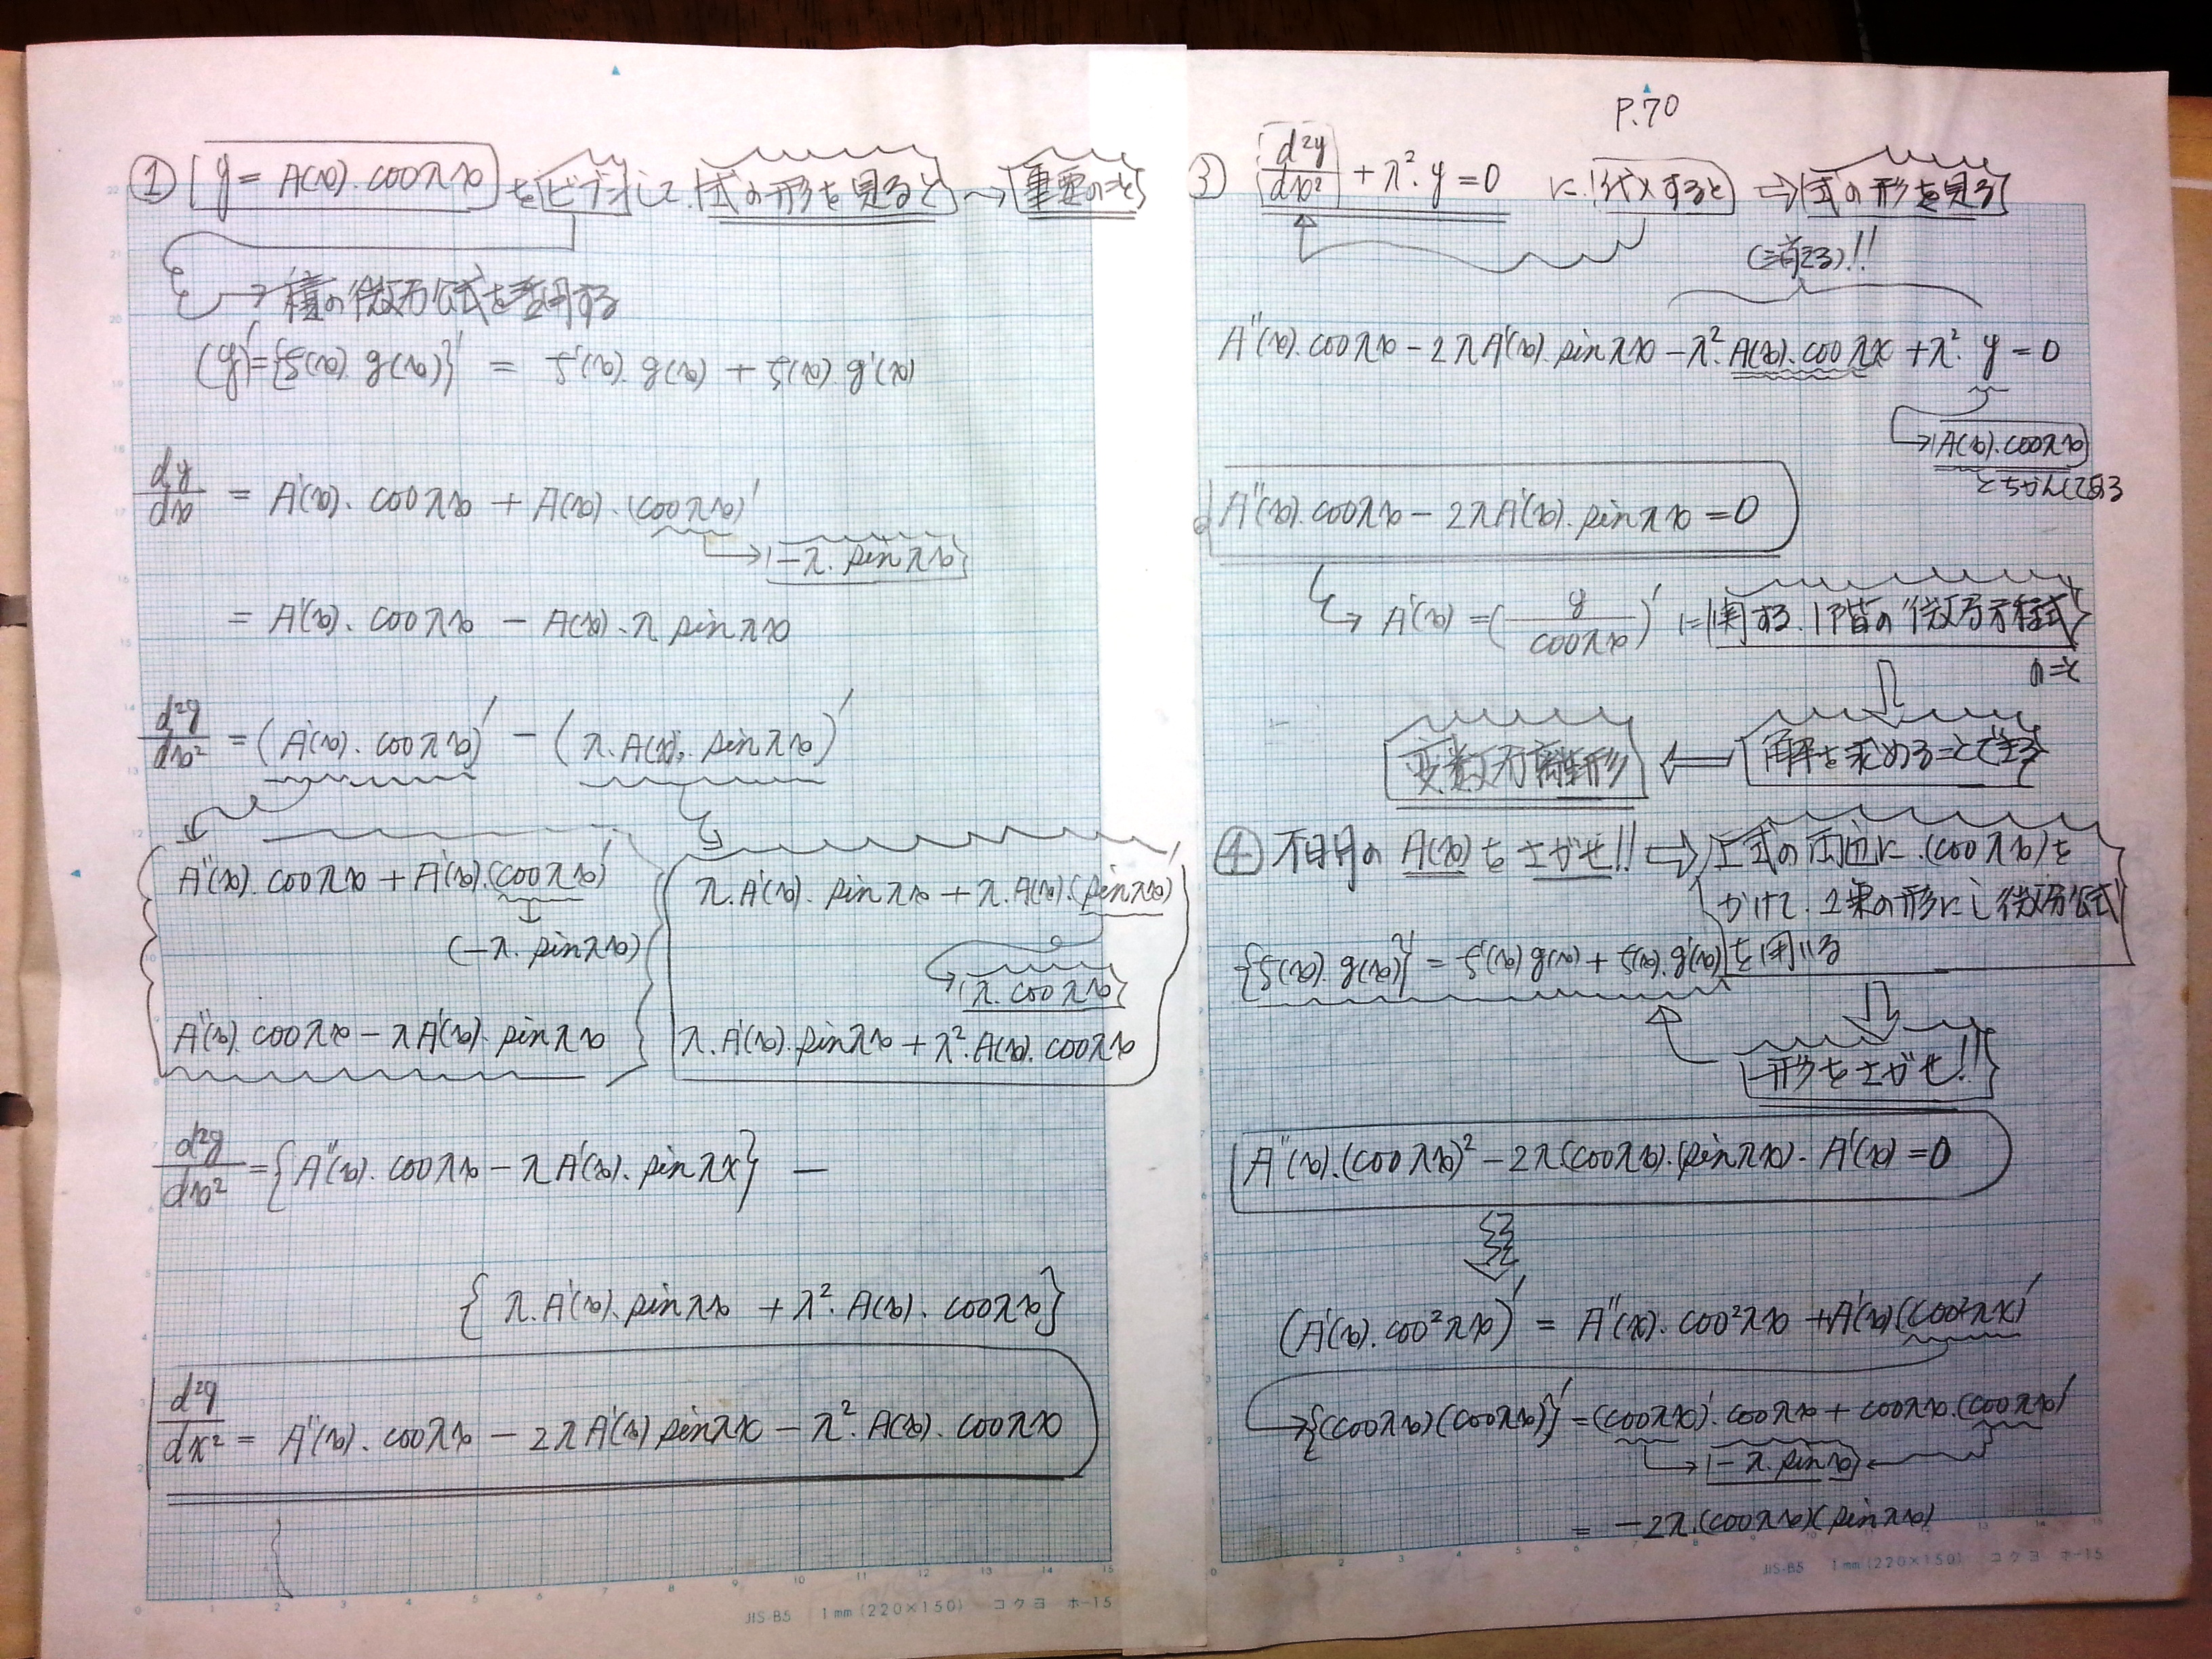 ① y = A(x)・cosλx をビブンして 式の形を見ると → 重要のこと
→ 積の微分公式を適用する
(y)'={f(x)・g(x)}' = f'(x)・g(x) + f(x)・g'(x)
dy/dx = A'(x)・cosλx + A(x)・(cosλx)'
→ -λ・sinλx
= A'(x)・cosλx - A(x)・λ sinλx
d²y/dx² = (A'(x)・cosλx)' - (λ・A(x)・sinλx)'
A''(x)・cosλx + A'(x)・(cosλx)'
(-λ・sinλx)
A''(x)・cosλx - λA'(x)・sinλx
λ・A'(x)・sinλx + λ・A(x)・(sinλx)'
λ・cosλx
λ・A'(x)・sinλx + λ²・A(x)・cosλx
d²y/dx² = {A''(x)・cosλx - λA'(x)・sinλx} -
{λ・A'(x)・sinλx + λ²・A(x)・cosλx}
d²y/dx² = A''(x)・cosλx - 2λA'(x) sinλx - λ²・A(x)・cosλx
JIS-B5 1mm (220×150) コクヨ ホ-15
P.70
③ d²y/dx² + λ²・y = 0 に代入すると ⇒ 式の形を見る
(消える)!!
A''(x)・cosλx - 2λA'(x)・sinλx - λ²・A(x)・cosλx + λ²・y = 0
→ A(x)・cosλx
A''(x)・cosλx - 2λA'(x)・sinλx = 0
→ A'(x) = (y/cosλx)' に関する、1階の微分方程式
解を求めることできる
変数分離形
④ 不明の A(x) をさがせ!! ⇒ 上式の両辺に (cosλx)を
かけて、2乗の形にし微分公式
{f(x)・g(x)}' = f'(x) g(x) + f(x)・g'(x) を用いる
形をさがせ!!
A''(x)・(cosλx)² - 2λ(cosλx)・(sinλx)・A'(x) = 0
(A'(x)・cos²λx)' = A''(x)・cos²λx + A'(x)(cos²λx)'
→ {(cosλx)(cosλx)}' = (cosλx)'・cosλx + cosλx・(cosλx)'
→ -λ・sinλx ←
= -2λ・(cosλx)(sinλx)
JIS-B5 1mm (220×150) コクヨ ホ-15